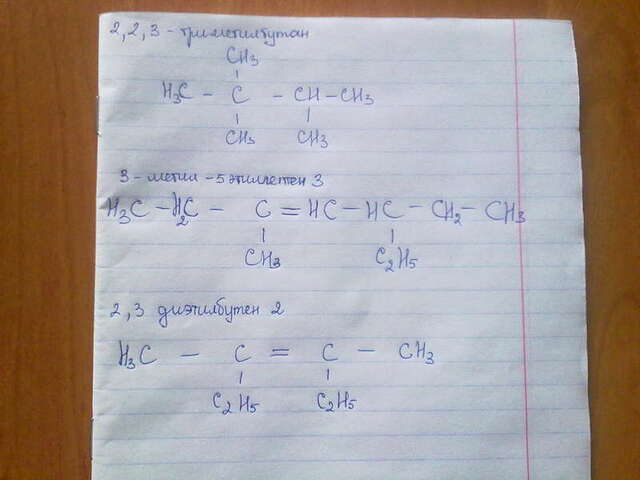 2,2,3 - триметилбутан
CH3
H3C - C - CH - CH3
CH3 CH3
3 - метил - 5 этилгептен 3
H3C - H2C - C = HC - HC - CH2 - CH3
CH3 C2H5
2,3 диэтилбутен 2
H3C - C = C - CH3
C2H5 C2H5